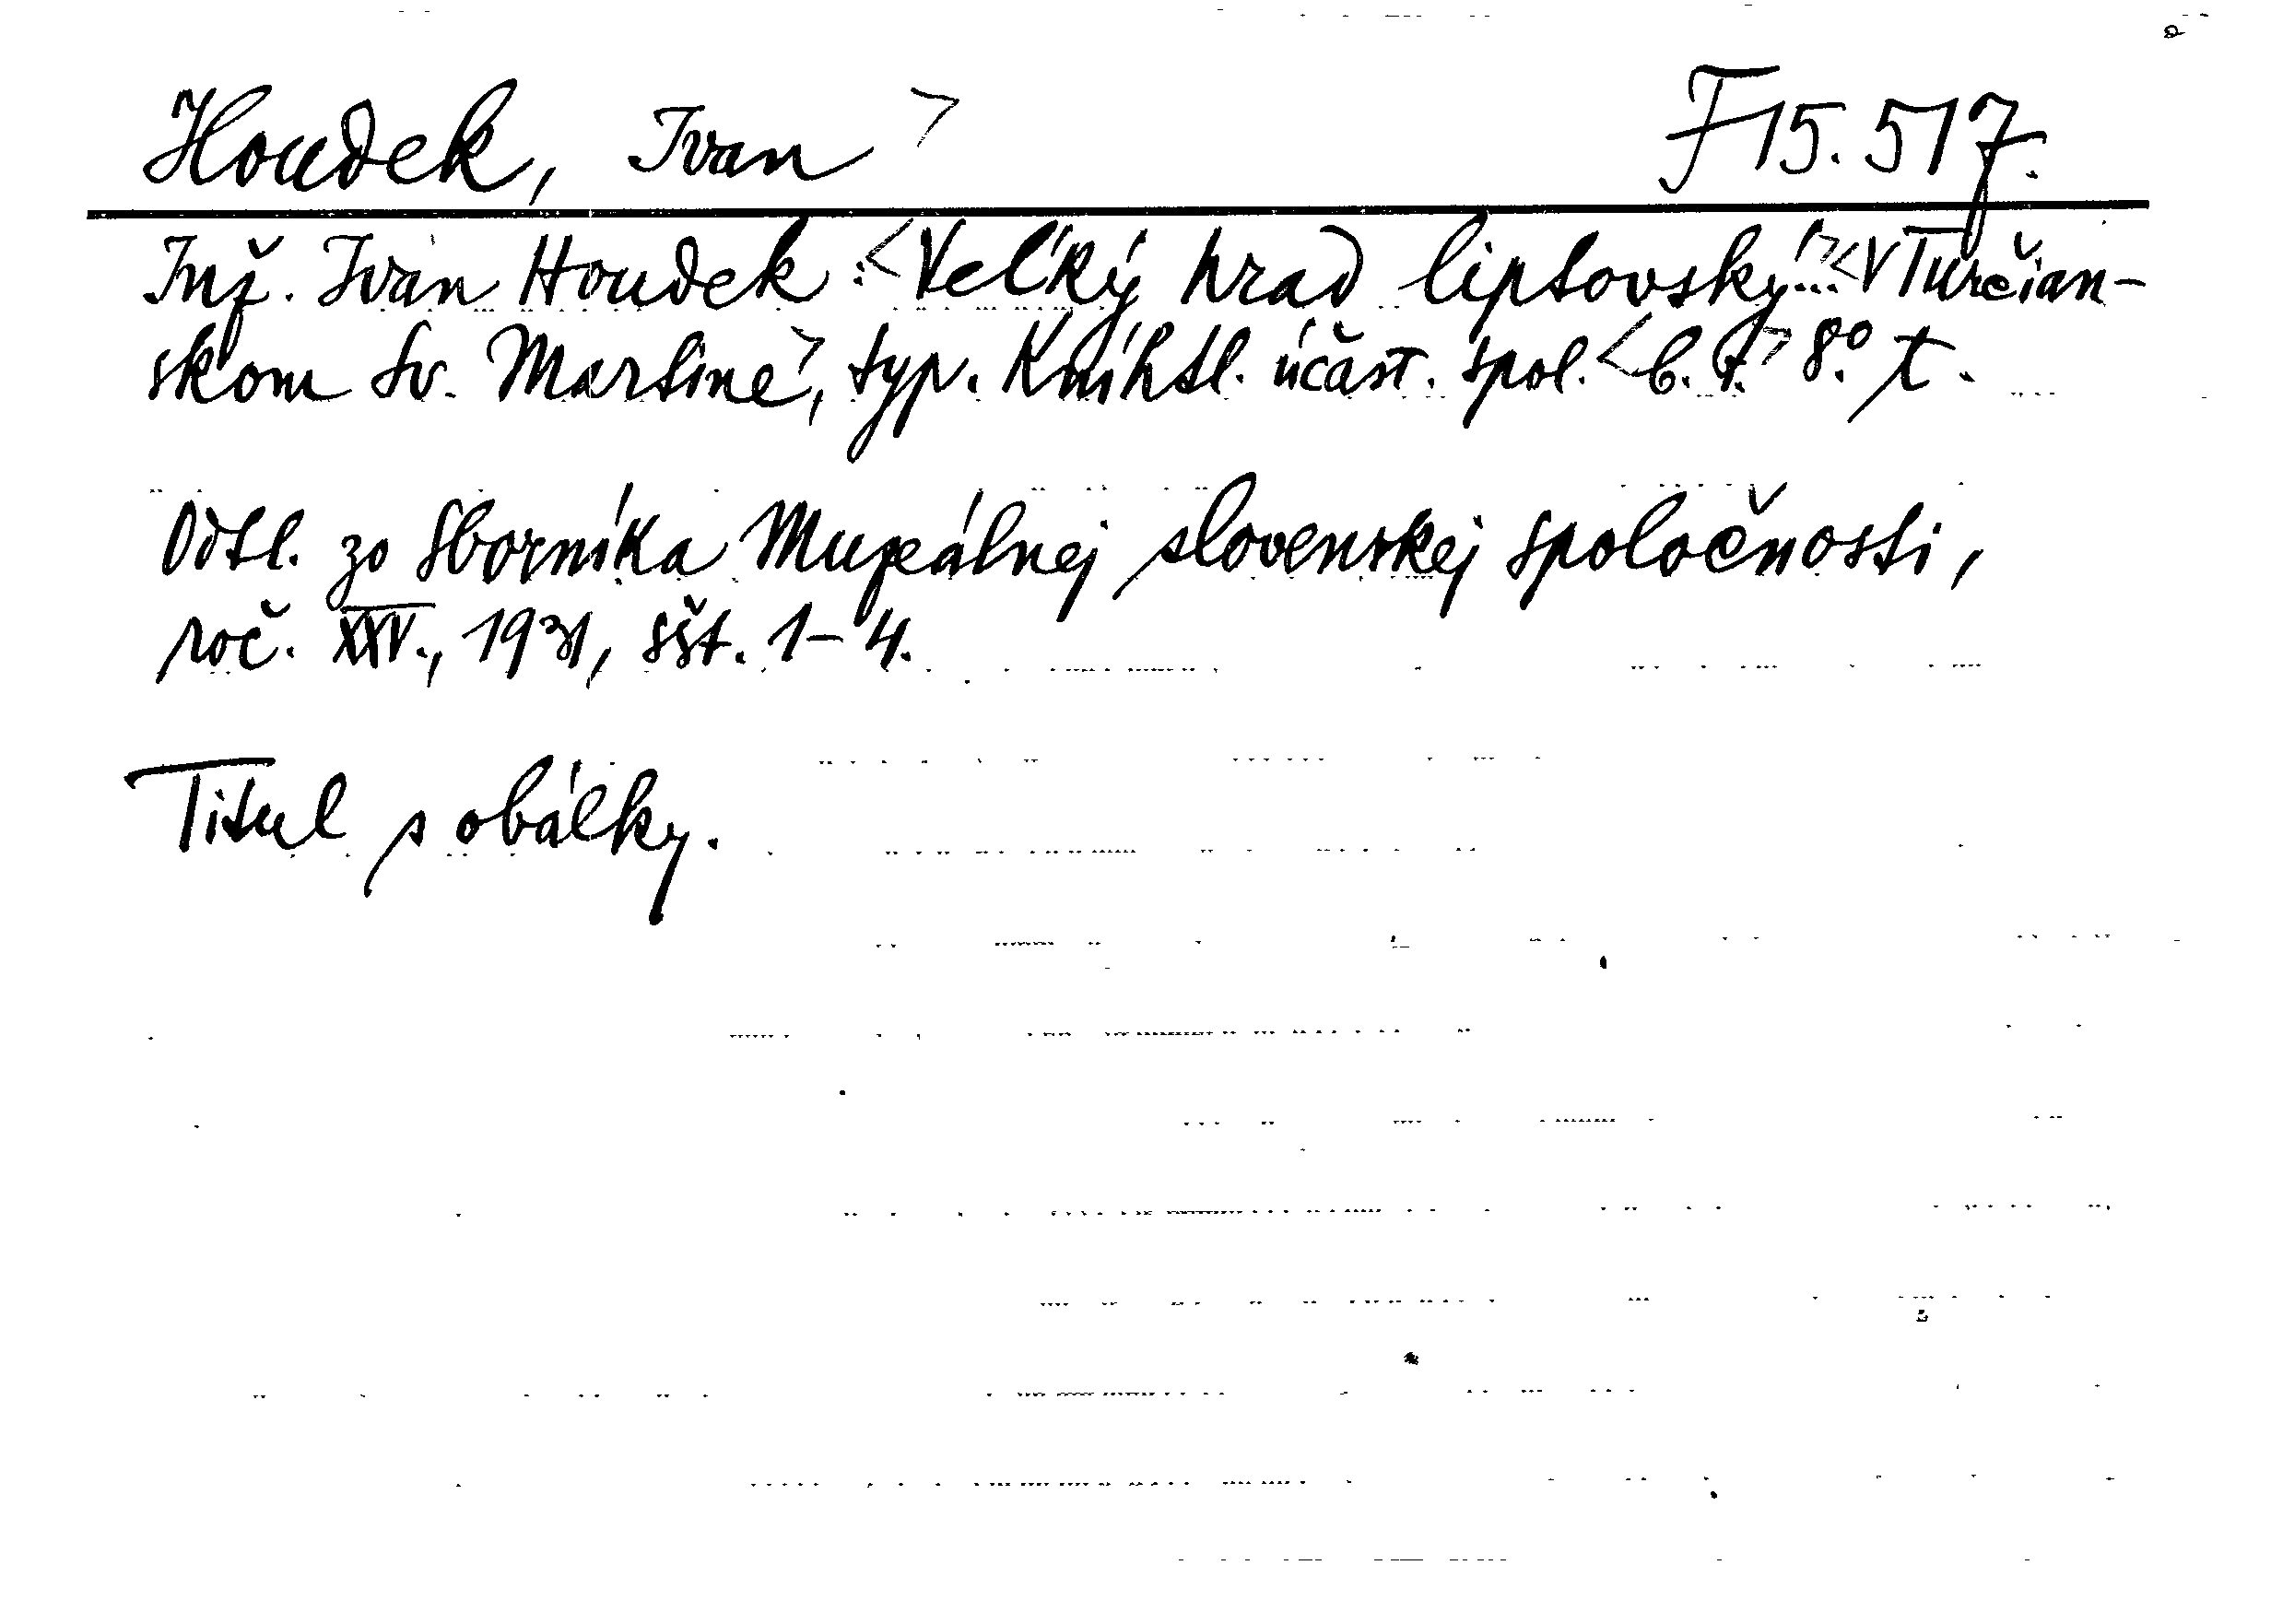 Houdek, Ivan > F 15.517.
Inž. Ivan Houdek: <Veľký hrad liptovský...> <V Turčian-
skom Sv. Martine>, typ. Kníhtl. účast. spol. <b. r.> 8.° t.
Odtl. zo Sborníka Muzeálnej slovenskej spoločnosti,
roč. XXV., 1931, sšt. 1-4.
Titul s obálky.